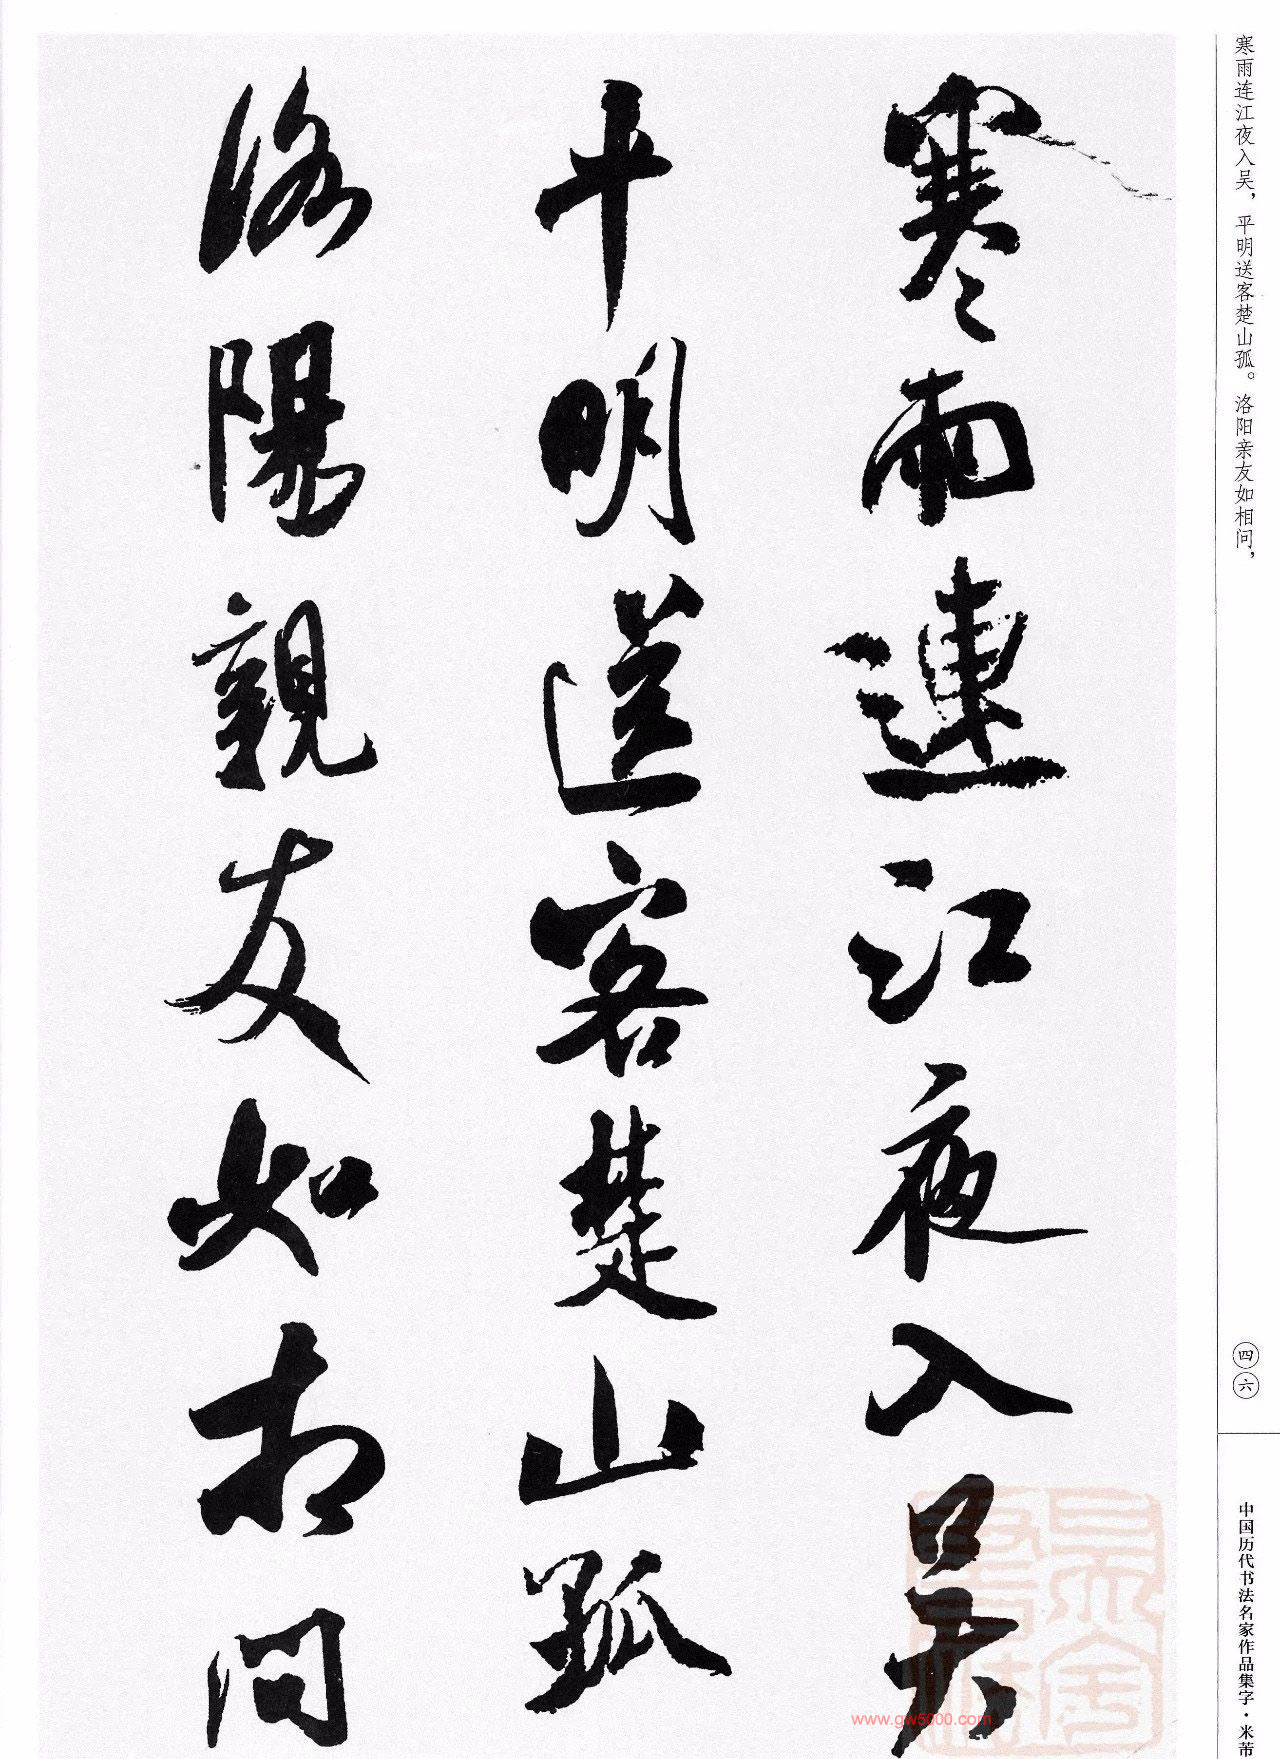 寒雨连江夜入吴，平明送客楚山孤。洛阳亲友如相问，
四六
中国历代书法名家作品集字·米芾
寒雨連江夜入吴
平明送客楚山孤
洛陽親友如相問
www.gw5000.com